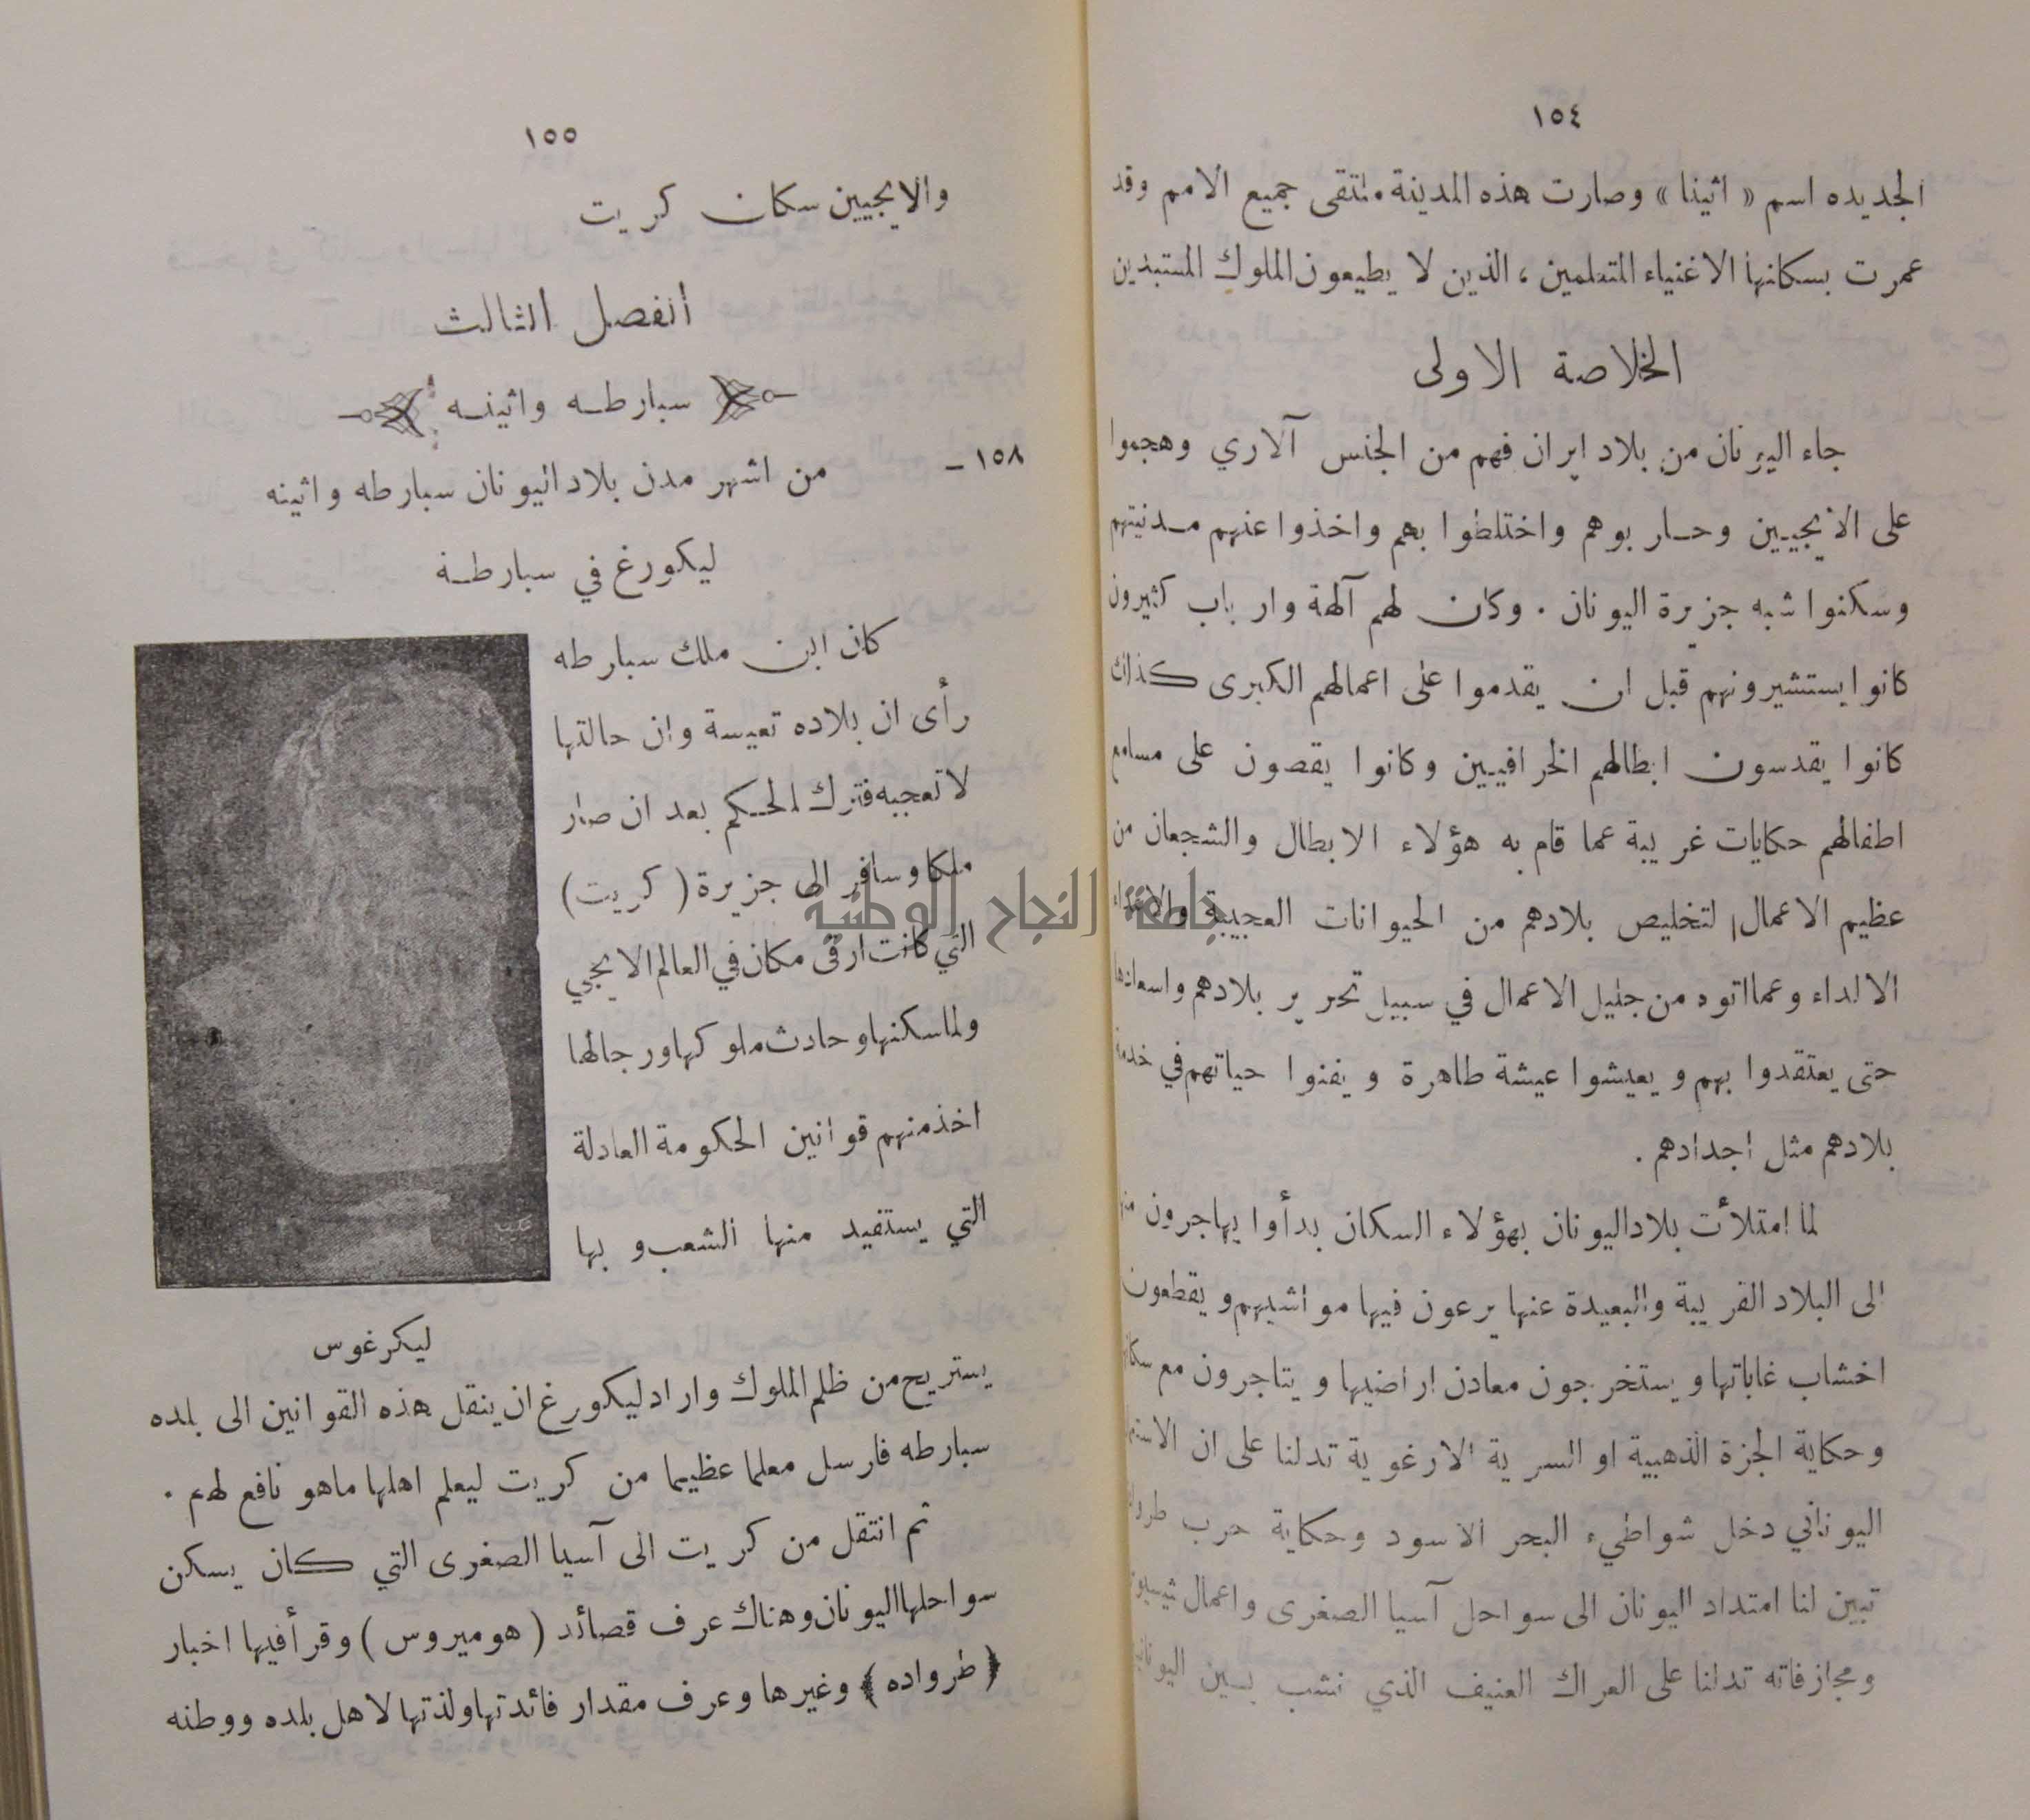 ١٥٤
الجديده اسم « اثينا » وصارت هذه المدينة ملتقى جميع الامم وقد
عمرت بسكانها الاغنياء المتعلمين ، الذين لا يطيعون الملوك المستبدين
الخلاصة الاولى
جاء اليونان من بلاد ايران فهم من الجنس آلاري وهجموا
على الايجيين وحاربوهم واختلطوا بهم واخذوا عنهم مدنيتهم
وسكنوا شبه جزيرة اليونان . وكان لهم آلهة وارباب كثيرون
كانوا يستشيرونهم قبل ان يقدموا على اعمالهم الكبرى كذلك
كانوا يقدسون ابطالهم الخرافيين وكانوا يقصون على مسامع
اطفالهم حكايات غريبة عما قام به هؤلاء الابطال والشجعان من
عظيم الاعمال لتخليص بلادهم من الحيوانات العجيبة
الالداء وعما اتوه من جليل الاعمال في سبيل تحرير بلادهم واسعادها
حتى يعتقدوا بهم ويعيشوا عيشة طاهرة ويفنوا حياتهم في خدمة
بلادهم مثل اجدادهم .
لما امتلأت بلاد اليونان بهؤلاء السكان بدأوا يهاجرون
الى البلاد القريبة والبعيدة عنها يرعون فيها مواشيهم ويقطعون
اخشاب غاباتها ويستخرجون معادن اراضيها ويتاجرون مع
وحكاية الجزة الذهبية او السرية الارغوية تدلنا على ان
اليوناني دخل شواطيء البحر الاسود وحكاية حرب
تبين لنا امتداد اليونان الى سواحل آسيا الصغرى واعمال
ومجازفاته تدلنا على العراك العنيف الذي نشب بين
١٥٥
والايجيين سكان كريت
الفصل الثالث
سبارطه واثينه
١٥٨ – من اشهر مدن بلاد اليونان سبارطه واثينه
ليكورغ في سبارطة
كان ابن ملك سبارطه
رأى ان بلاده تعيسة وان حالتها
لا تعجبه فترك الحكم بعد ان صار
ملكا وسافر الى جزيرة ( كريت )
التي كانت ارقى مكان في العالم الايجي
ولما سكنها وحادث ملوكها ورجالها
اخذ منهم قوانين الحكومة العادلة
التي يستفيد منها الشعب وبها
ليكرغوس
يستريح من ظلم الملوك واراد ليكورغ ان ينقل هذه القوانين الى بلده
سبارطه فارسل معلما عظيما من كريت ليعلم اهلها ماهو نافع لهم .
ثم انتقل من كريت الى آسيا الصغرى التي كان يسكن
سواحلها اليونان وهناك عرف قصائد ( هوميروس ) وقرأ فيها اخبار
( طرواده ) وغيرها وعرف مقدار فائدتها ولذتها لاهل بلده ووطنه
جامعة النجاح الوطنية